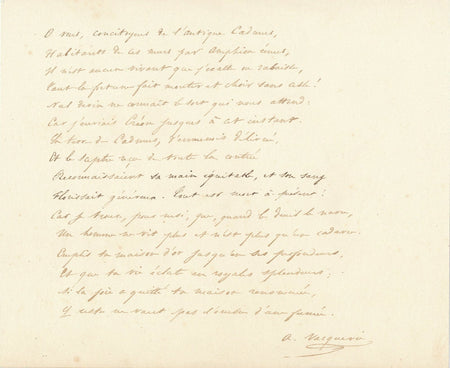 O vous, concitoyens de l'antique Cadmus,
Habitants de ces murs par Amphion émus,
Il n'est aucun vivant que j'exalte ou rabaisse,
Tant la fortune fait monter et choir sans cesse!
Nul devin ne connaît le sort qui nous attend:
Car j'enviais Créon jusques à cet instant.
Le trône de Cadmus, d'ennemis délivré,
Et le sceptre de toute la contrée
Reconnaissaient sa main équitable, et son sang
Florissait généreux. Tout est mort à présent!
Car je trouve, pour moi, que, quand le deuil le navre,
Un homme ne vit plus et n'est plus qu'un cadavre.
Emplis ta maison d'or jusqu'en ses profondeurs,
Et que ta vie éclate en royales splendeurs;
Si la joie a quitté ta maison renommée,
Le reste ne vaut pas l'ombre d'une fumée.
A. Vacquerie